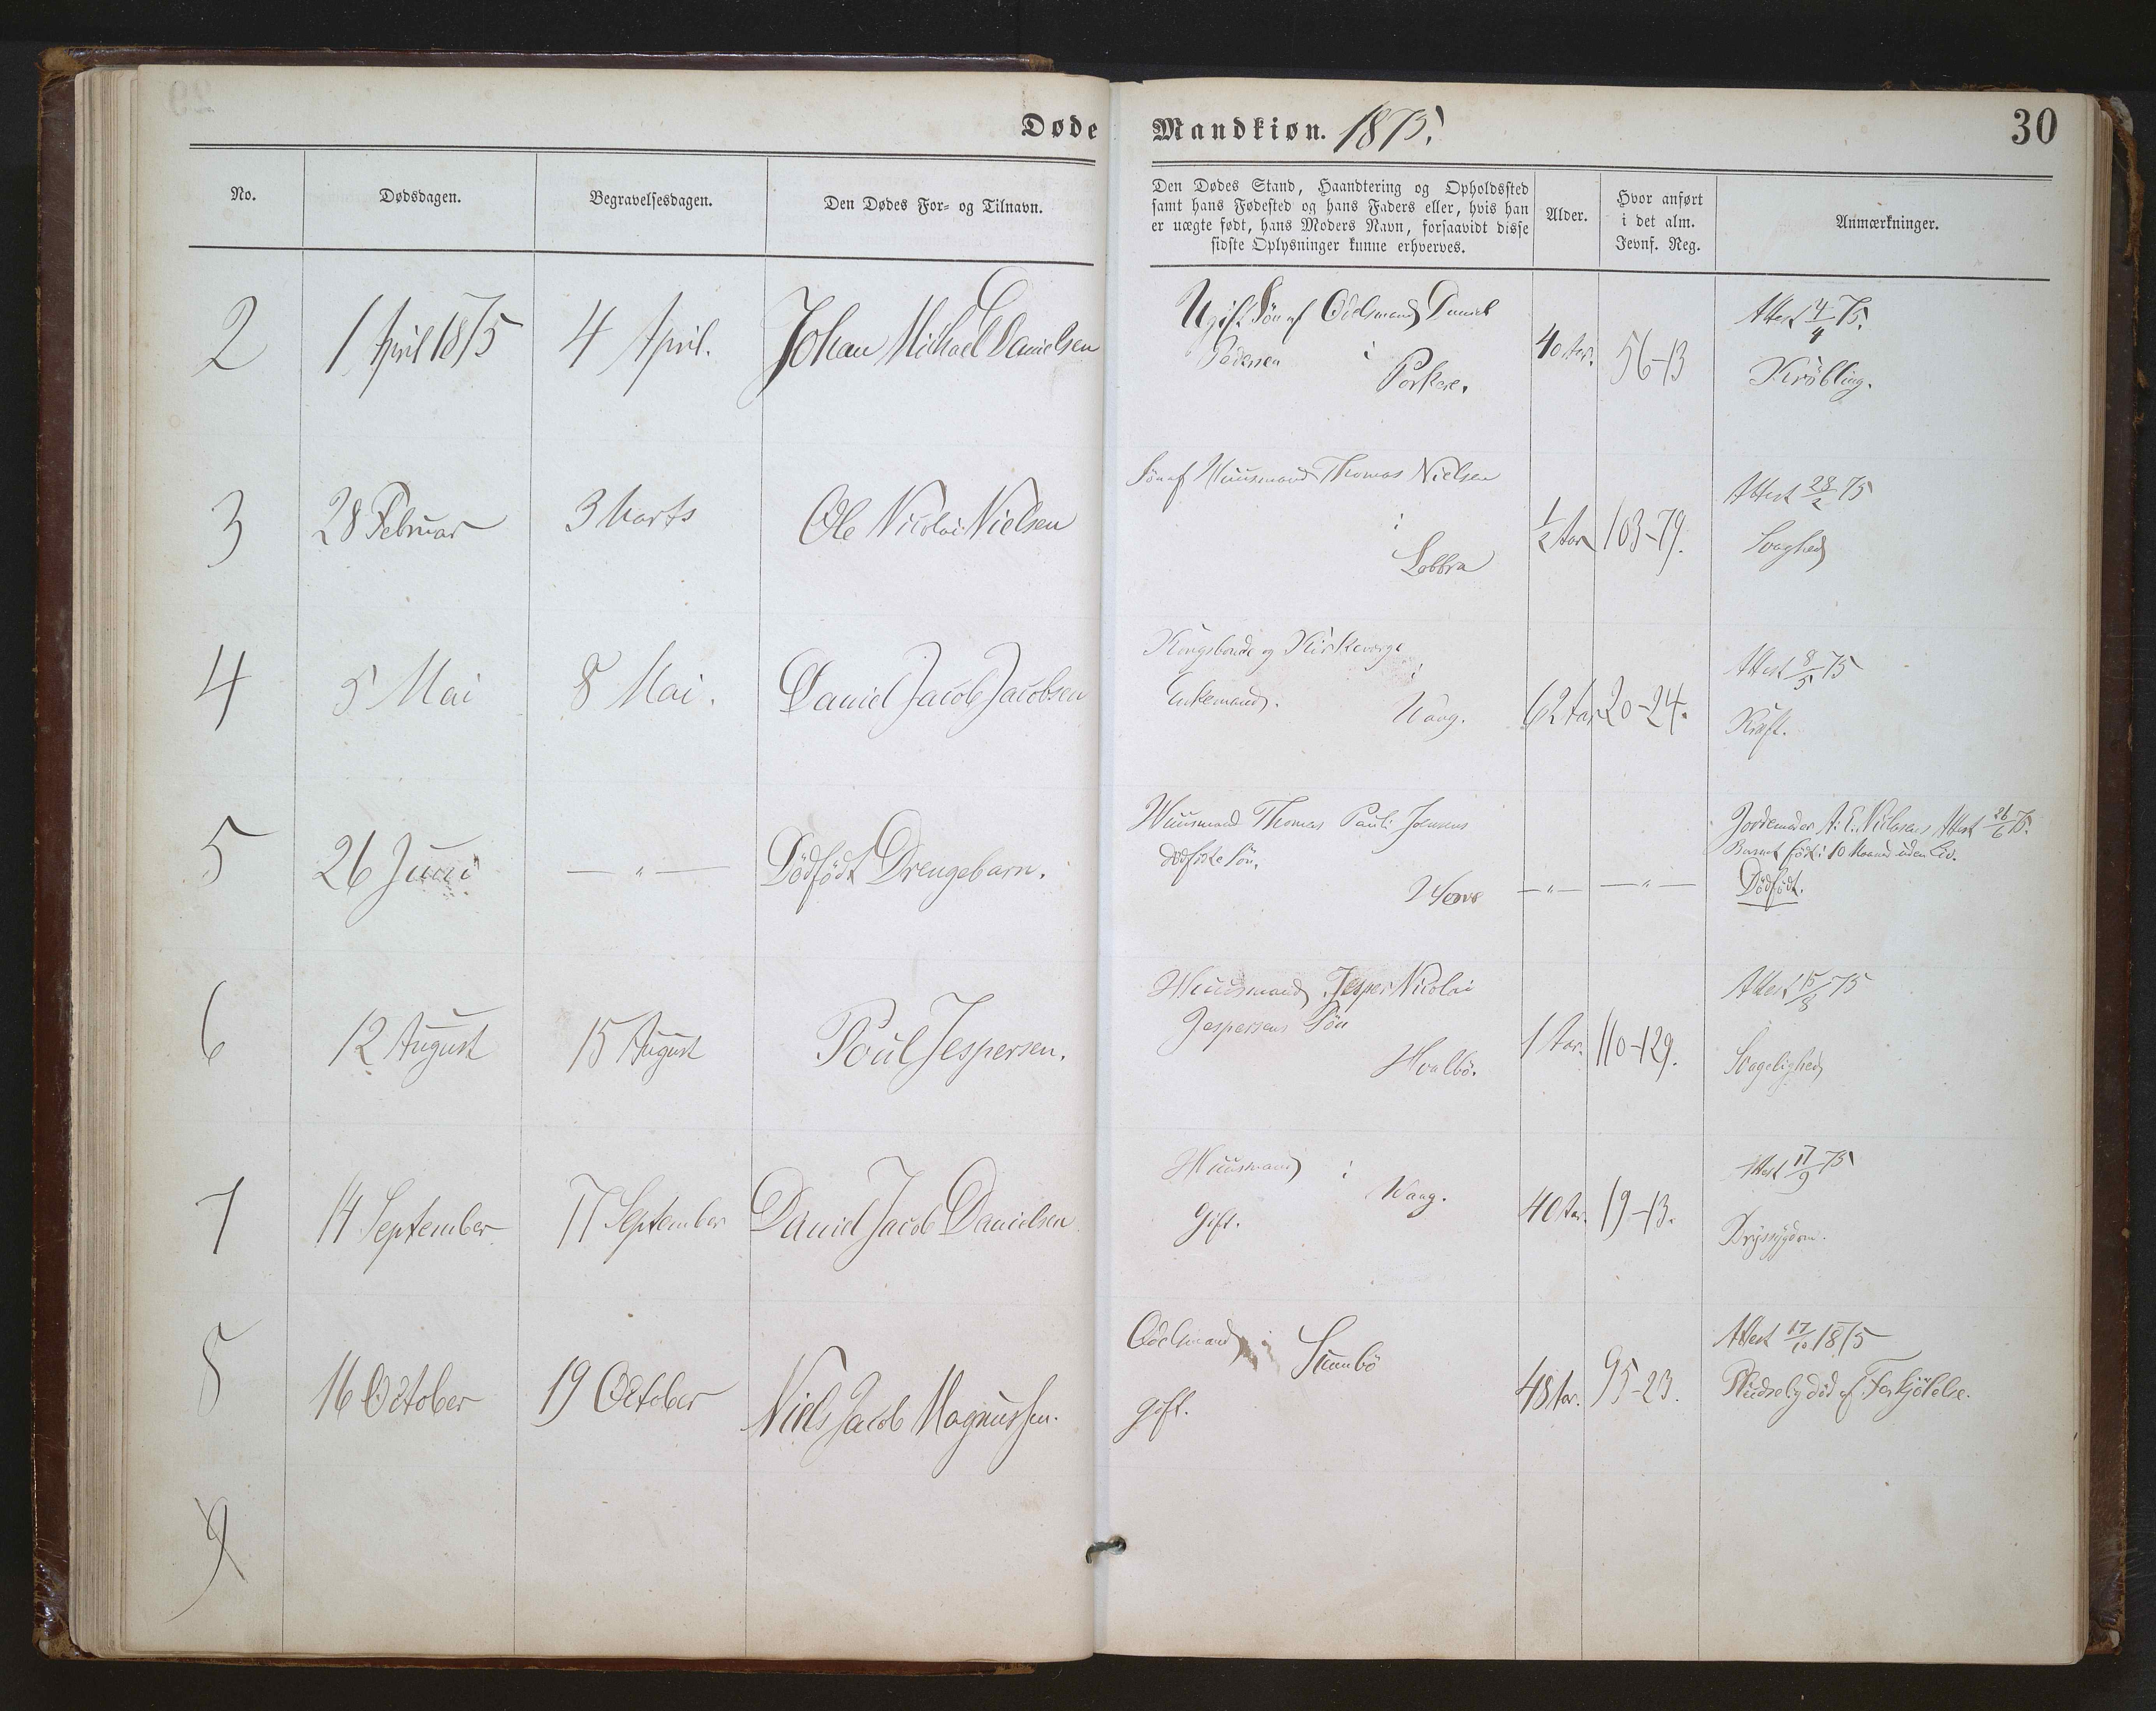 Døde Mandkiøn. 1875.
30
No.
Dødsdagen.
Begravelsesdagen.
Den Dødes For- og Tilnavn.
Den Dødes Stand, Haandtering og Opholdssted
samt hans Fødested og hans Faders eller, hvis han
er uægte født, hans Moders Navn, forsaavidt disse
sidste Oplysninger kunne erhverves.
Alder.
Hvor anført
i det alm.
Jevnf. Reg.
Anmærkninger.
2
1 April 1875
4 April.
Johan Michael Danielsen
Ugift Søn af Odelsmand Daniel
Pedersen i
Porkere.
40 Aar.
56-13
Attest 4/4 75.
Kröbling.
3
28 Februar
3 Marts
Ole Nicolai Nielsen
Søn af Huusmand Thomas Nielsen
i
Lobbra
1/2 Aar
103-79.
Attest 28/2 75
Svaghed
4
5 Mai
8 Mai.
Daniel Jacob Jacobsen
Kongsbonde og Kirkeværge
i
Enkemand.
Waag.
62 Aar
20-24.
Attest 8/5 75
Kræft.
5
26 Juni
— " —
Dødfødt Drengebarn.
Huusmand Thomas Pauli Joensens
dødfødte Søn.
Hove
— " —
— " —
Jordemoder A. E. Nielsens Attest 26/6 75.
Barnet født i 10 Maaned uden Liv.
Dødfødt.
6
12 August
15 August
Poul Jespersen.
Huusmand Jesper Nicolai
Jespersens Søn
Hvalbö.
1 Aar.
110-129.
Attest 15/8 75
Svagelighed
7
14 September
17 September
Daniel Jacob Danielsen
Huusmand i
Waag.
Gift.
40 Aar.
19-13.
Attest 17/9 75
Brystsygdom.
8
16 October
19 October
Niels Jacob Magnussen.
Odelsmand i Sumbö
gift.
48 Aar.
95-23.
Attest 17/10 1875
Pludselig død af Forkjölelse.
9